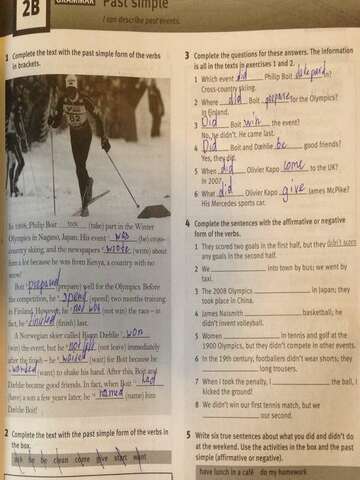 2B GRAMMAR Past simple
I can describe past events.
1 Complete the text with the past simple form of the verbs
in brackets.
In 1998, Philip Boit took (take) part in the Winter
Olympics in Nagano, Japan. His event was (be) cross-
country skiing, and the newspapers wrote (write) about
him a lot because he was from Kenya, a country with no
snow!
Boit prepared (prepare) well for the Olympics. Before
the competition, he spend (spend) two months training
in Finland. However, he not win (not win) the race – in
fact, he finished (finish) last.
A Norwegian skier called Bjørn Dæhlie won
(win) the event, but he (not leave) immediately
after the finish – he waited (wait) for Boit because he
wanted (want) to shake his hand. After this, Boit and
Dæhlie became good friends. In fact, when Boit had
(have) a son a few years later, he named (name) him
Dæhlie Boit!
2 Complete the text with the past simple form of the verbs in
the box.
ask be be clean come give start want
3 Complete the questions for these answers. The information
is all in the texts in exercises 1 and 2.
1 Which event did Philip Boit in?
Cross-country skiing.
2 Where did Boit prepare for the Olympics?
In Finland.
3 Did Boit win the event?
No, he didn't. He came last.
4 Did Boit and Dæhlie be good friends?
Yes, they did.
5 When did Olivier Kapo come to the UK?
In 2007.
6 What did Olivier Kapo give James McPike?
His Mercedes sports car.
4 Complete the sentences with the affirmative or negative
form of the verbs.
1 They scored two goals in the first half, but they didn't score
any goals in the second half.
2 We into town by bus; we went by
taxi.
3 The 2008 Olympics in Japan; they
took place in China.
4 James Naismith basketball; he
didn't invent volleyball.
5 Women in tennis and golf at the
1900 Olympics, but they didn't compete in other events.
6 In the 19th century, footballers didn't wear shorts; they
long trousers.
7 When I took the penalty, I the ball, I
kicked the ground!
8 We didn't win our first tennis match, but we
our second.
5 Write six true sentences about what you did and didn't do
at the weekend. Use the activities in the box and the past
simple (affirmative or negative).
have lunch in a café do my homework